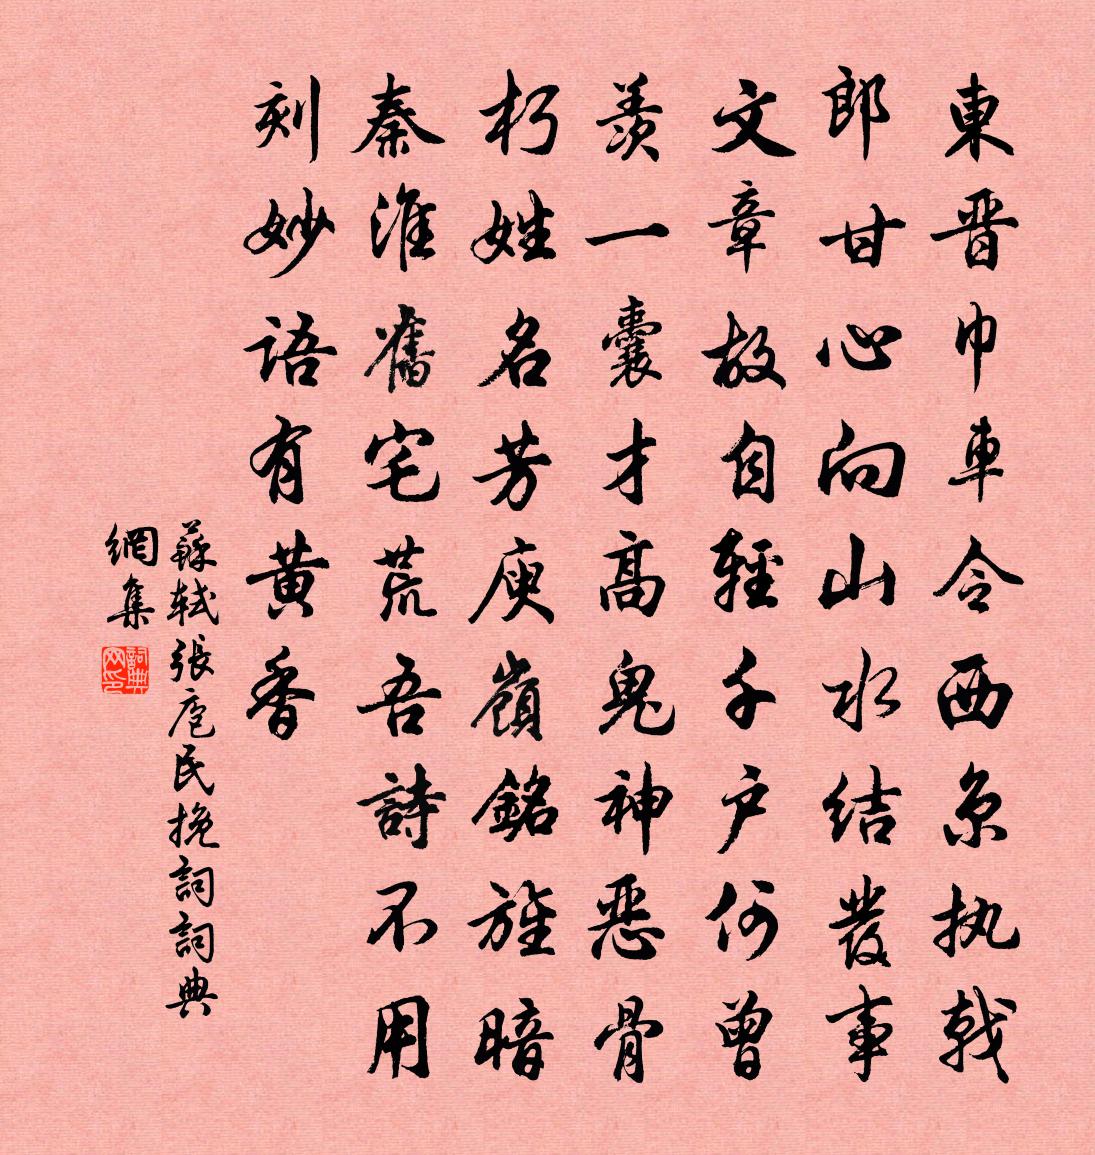 東晋巾車令西京执戟
郎甘心向山水结發事
文章故自輕千户何曾
羡一囊才高鬼神惡骨
朽姓名芳庾嶺銘旌暗
秦淮舊宅荒吾詩不用
刻妙語有黄香
蘇轼張庖民挽詞詞典
網集
詞典
网印